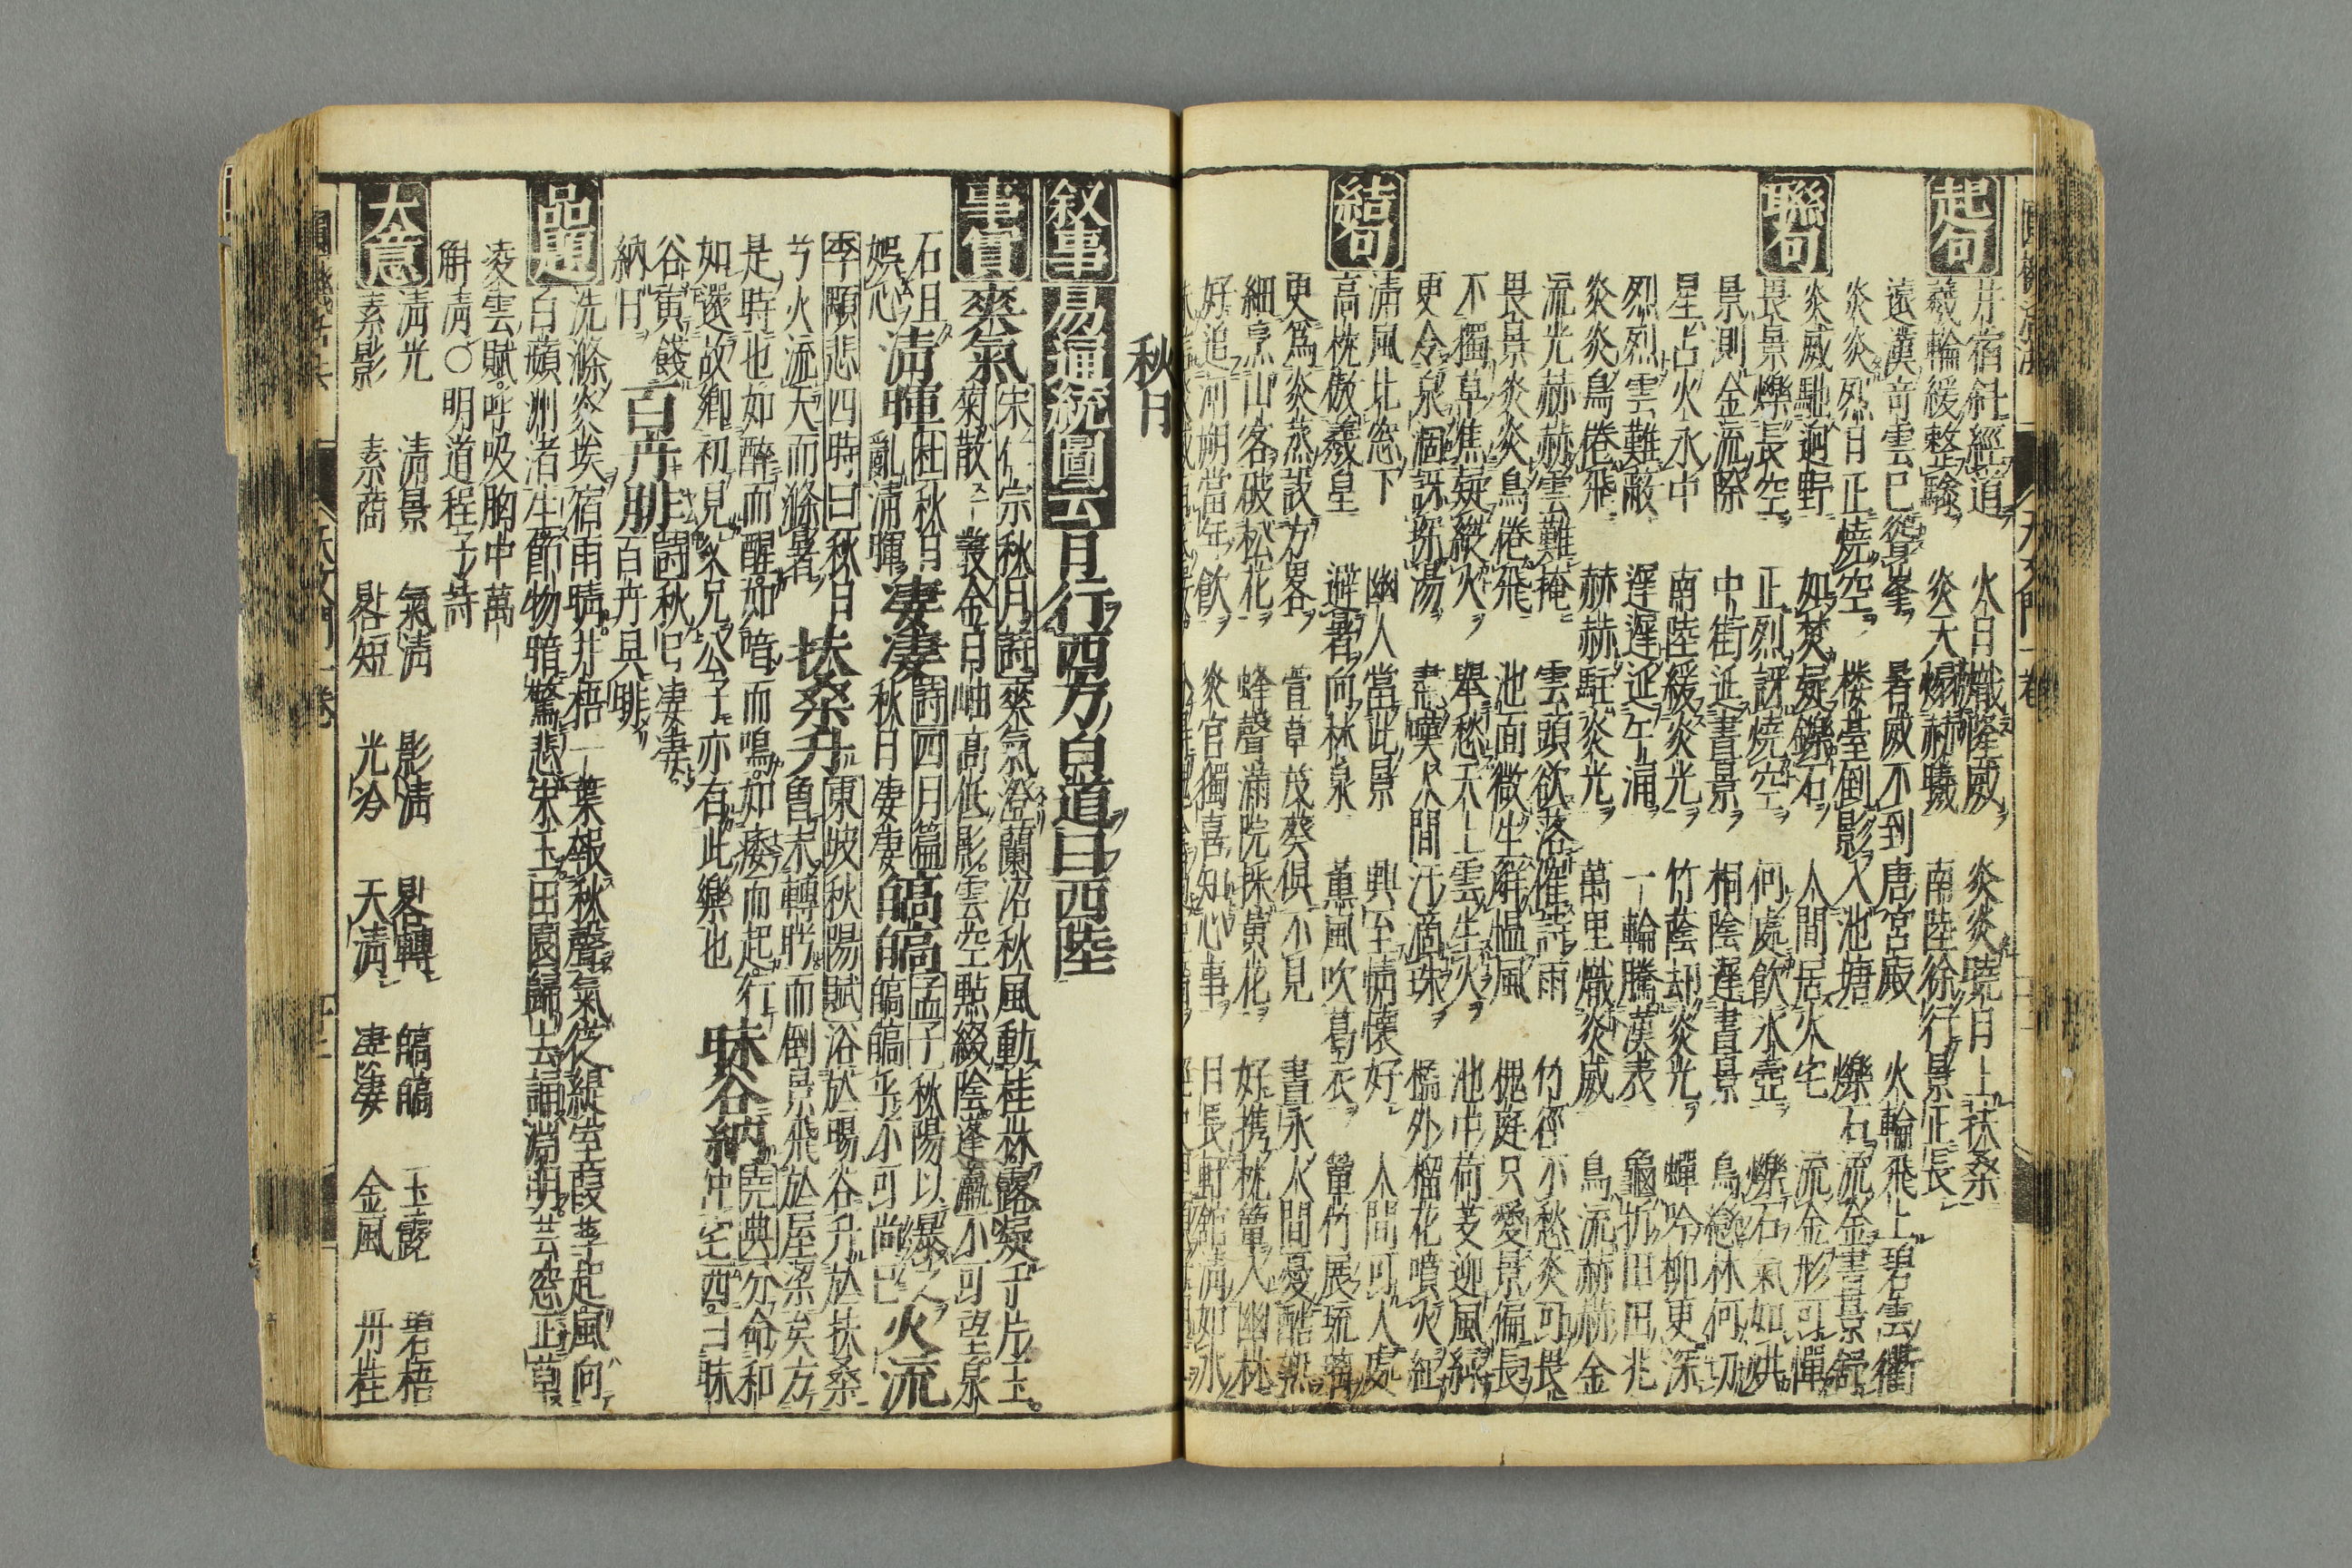 起句
井宿斜經道 火日熾隆威 炎炎曉日上扶桑
羲輪緩整驂 炎天煽赫曦 南陸徐行景正長
遠漢奇雲已聳峯 暑威不到唐宮殿 火輪飛上碧雲衢
炎炎烈日正燒空 楼臺倒影入池塘 爍石流金晝景舒
聯句
炎威馳逈野 如焚凝鑠石 人間居火宅 流金形可憚
畏景爍長空 正烈訝燒空 何處飲氷壺 爍石氣如烘
景測金流際 中街延晝景 桐陰遲晝景 鳥戀林何切
星占火永中 南陸緩炎光 竹蔭却炎光 蟬吟柳更深
烈烈雲難敵 遲遲延午漏 一輪騰漢表 龜拆田田兆
炎炎鳥倦飛 赫赫駐炎光 萬里熾炎威 鳥流赫赫金
流光赫赫雲難掩 雲頭欲落催詩雨 竹徑不愁炎可畏
畏景炎炎鳥倦飛 池面微生解慍風 槐庭只愛景偏長
不獨草焦疑縱火 舉愁天上雲生火 池中荷芰迎風綠
更令泉涸訝探湯 盡嘆人間汗滴珠 檻外榴花噴火紅
結句
淸風北窓下 幽人當此景 興至情懷好 人間可人處
高枕傲羲皇 避暑向林泉 薫風吹葛衣 簟竹展琉璃
更爲炎蒸設方畧 萱草茂葵俱不見 晝永人間憂酷熱
細烹山茗破松花 蜂聲滿院採黄花 好携枕簟入幽林
好追河朔當年飲 炎官獨喜知心事 日長軒館淸如氷
秋日
叙事 易通統圖云日行西方白道曰西陸
事實 爽氣 宋仁宗秋月詩爽氣澄蘭沼秋風動桂林露凝千片玉
菊散一叢金日岫高低影雲空點綴陰蓬瀛不可望泉
石日 淸暉 杜秋日 淒淒 詩四月篇 皜皜 孟子秋陽以暴之 火流
娯心 亂淸暉 秋日凄凄 皜皜乎不可尚已
季顒悲四時曰秋日 扶桑升 東坡秋陽賦浴於暘谷升於扶桑
兮火流天而滌暑 曾未轉盻而倒景飛於屋梁矣方
是時也如醉而醒如喑而鳴如痿而起行 昧谷納 堯典分命和
如還故鄉初見父兄公子亦有此樂也 仲宅西曰昧
谷寅餞 百卉腓 詩秋日凄凄
納日 百卉具腓
品題 洗滌炎埃宿雨晴井梧一葉報秋聲氣從緹室葭莩起風向
白蘋洲渚生節物暗驚悲宋玉田園歸去誦淵明芸窓正草
凌雲賦呼吸胸中萬
斛淸○明道程子詩
大意 淸光 淸景 氣淸 影淸 晷轉 皜皜 玉露 碧梧
素影 素商 晷短 光冷 天淸 凄凄 金風 丹桂